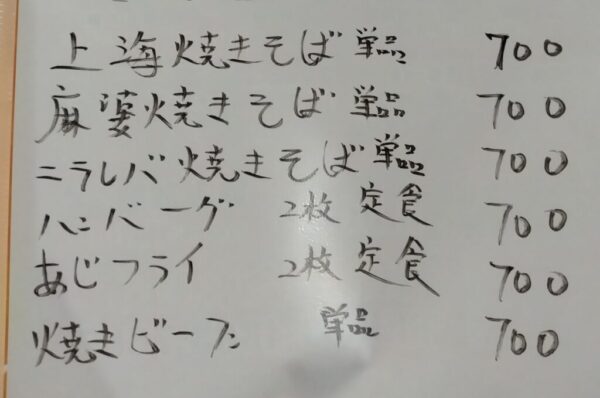 上海焼きそば 単品 700
麻婆焼きそば 単品 700
ニラレバ焼きそば 単品 700
ハンバーグ 2枚 定食 700
あじフライ 2枚 定食 700
焼きビーフン 単品 700